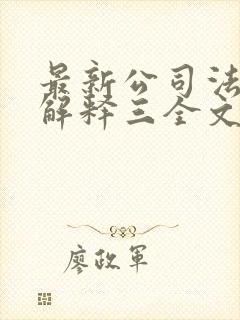 最新公司法
解释三全文
廖政军